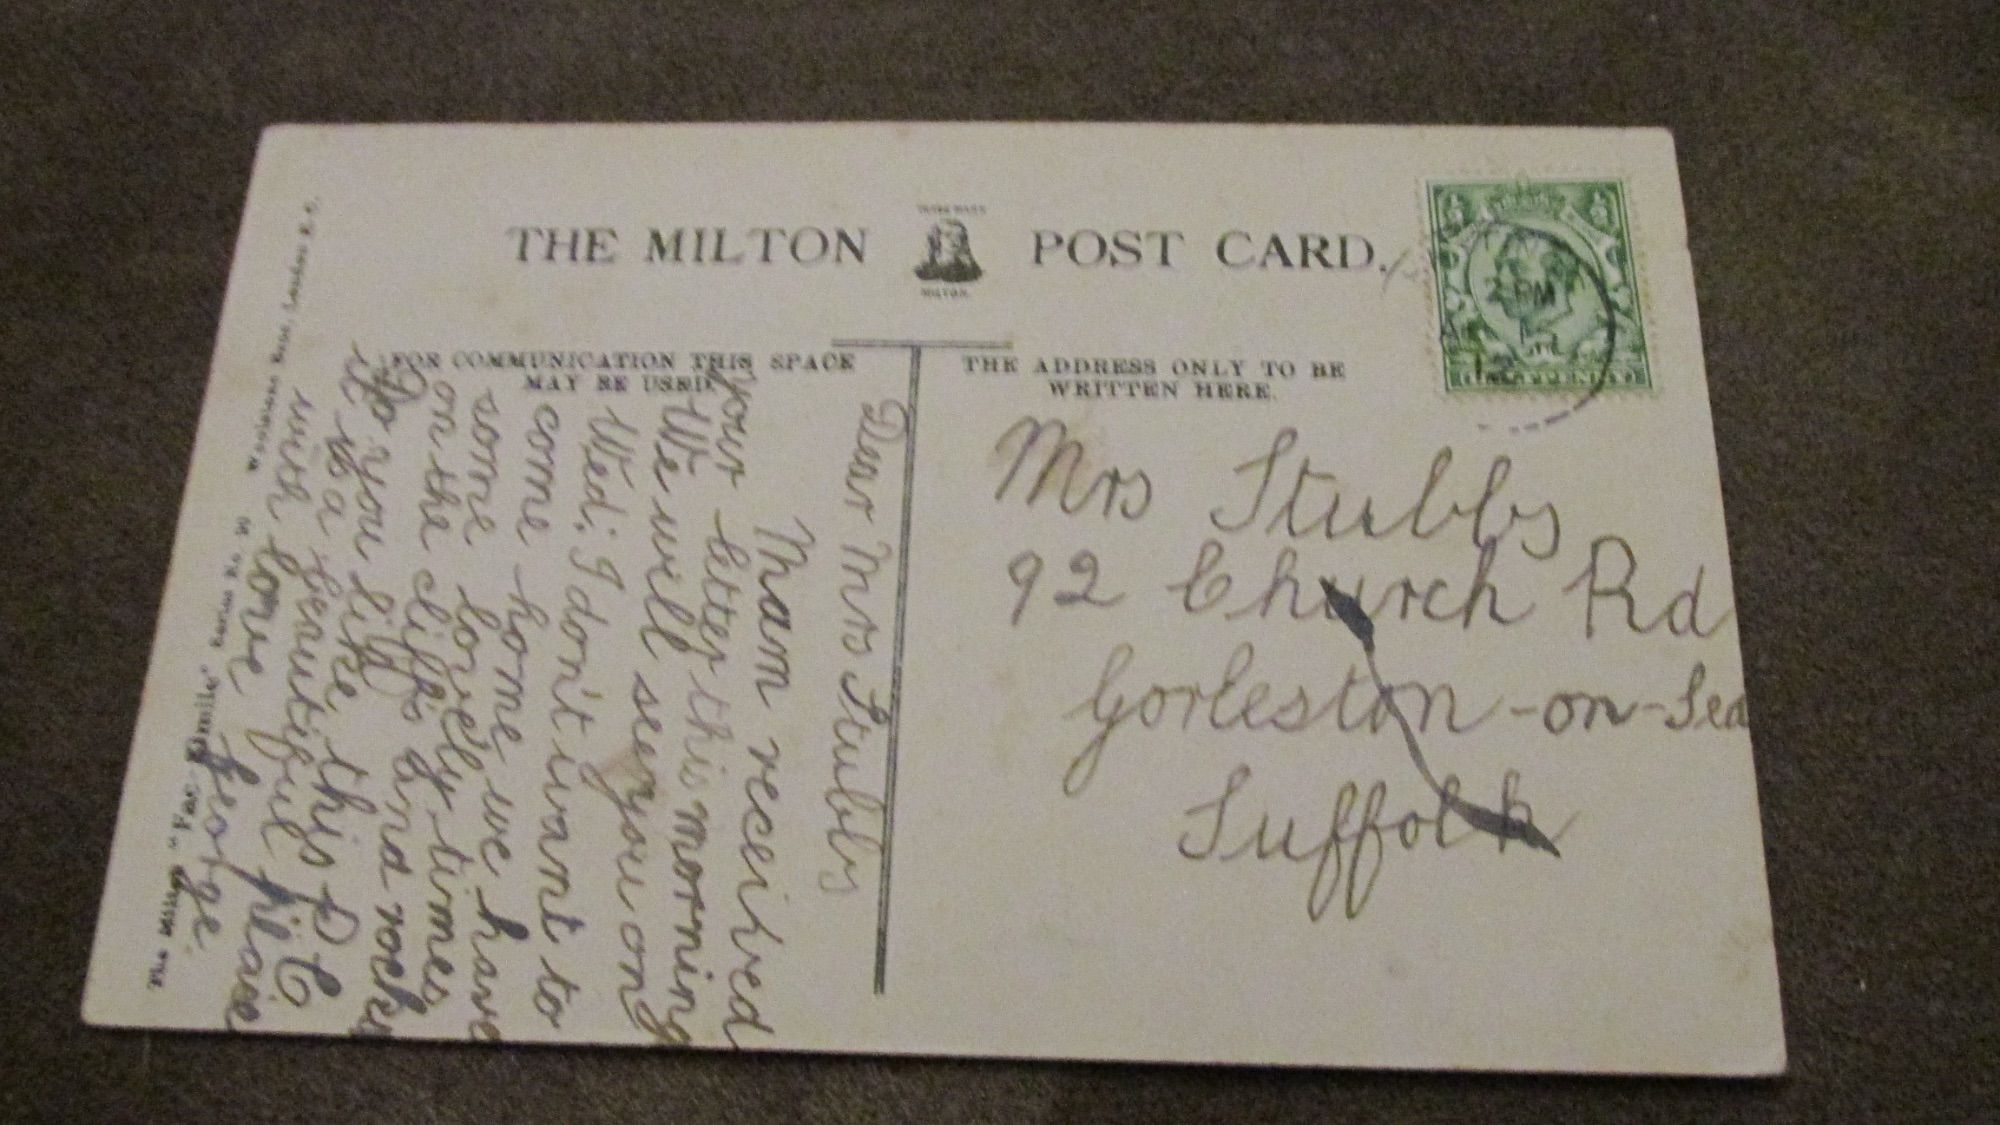 THE MILTON POST CARD.
TRADE MARK
MILTON.
FOR COMMUNICATION THIS SPACE
MAY BE USED.
THE ADDRESS ONLY TO BE
WRITTEN HERE.
2 PM
Dear Mrs Stubbs
Mam received
your letter this morning
We will see you on
Wed: I don't want to
come home we have
some lovely times
on the cliffs and rocks
Do you like this P.C
it is a beautiful place
with love George.
Mrs Stubbs
92 Church Rd
Gorleston-on-Sea
Suffolk
The Milton "Fac-Simile" Series No. Woolstone Bros., London E.C.